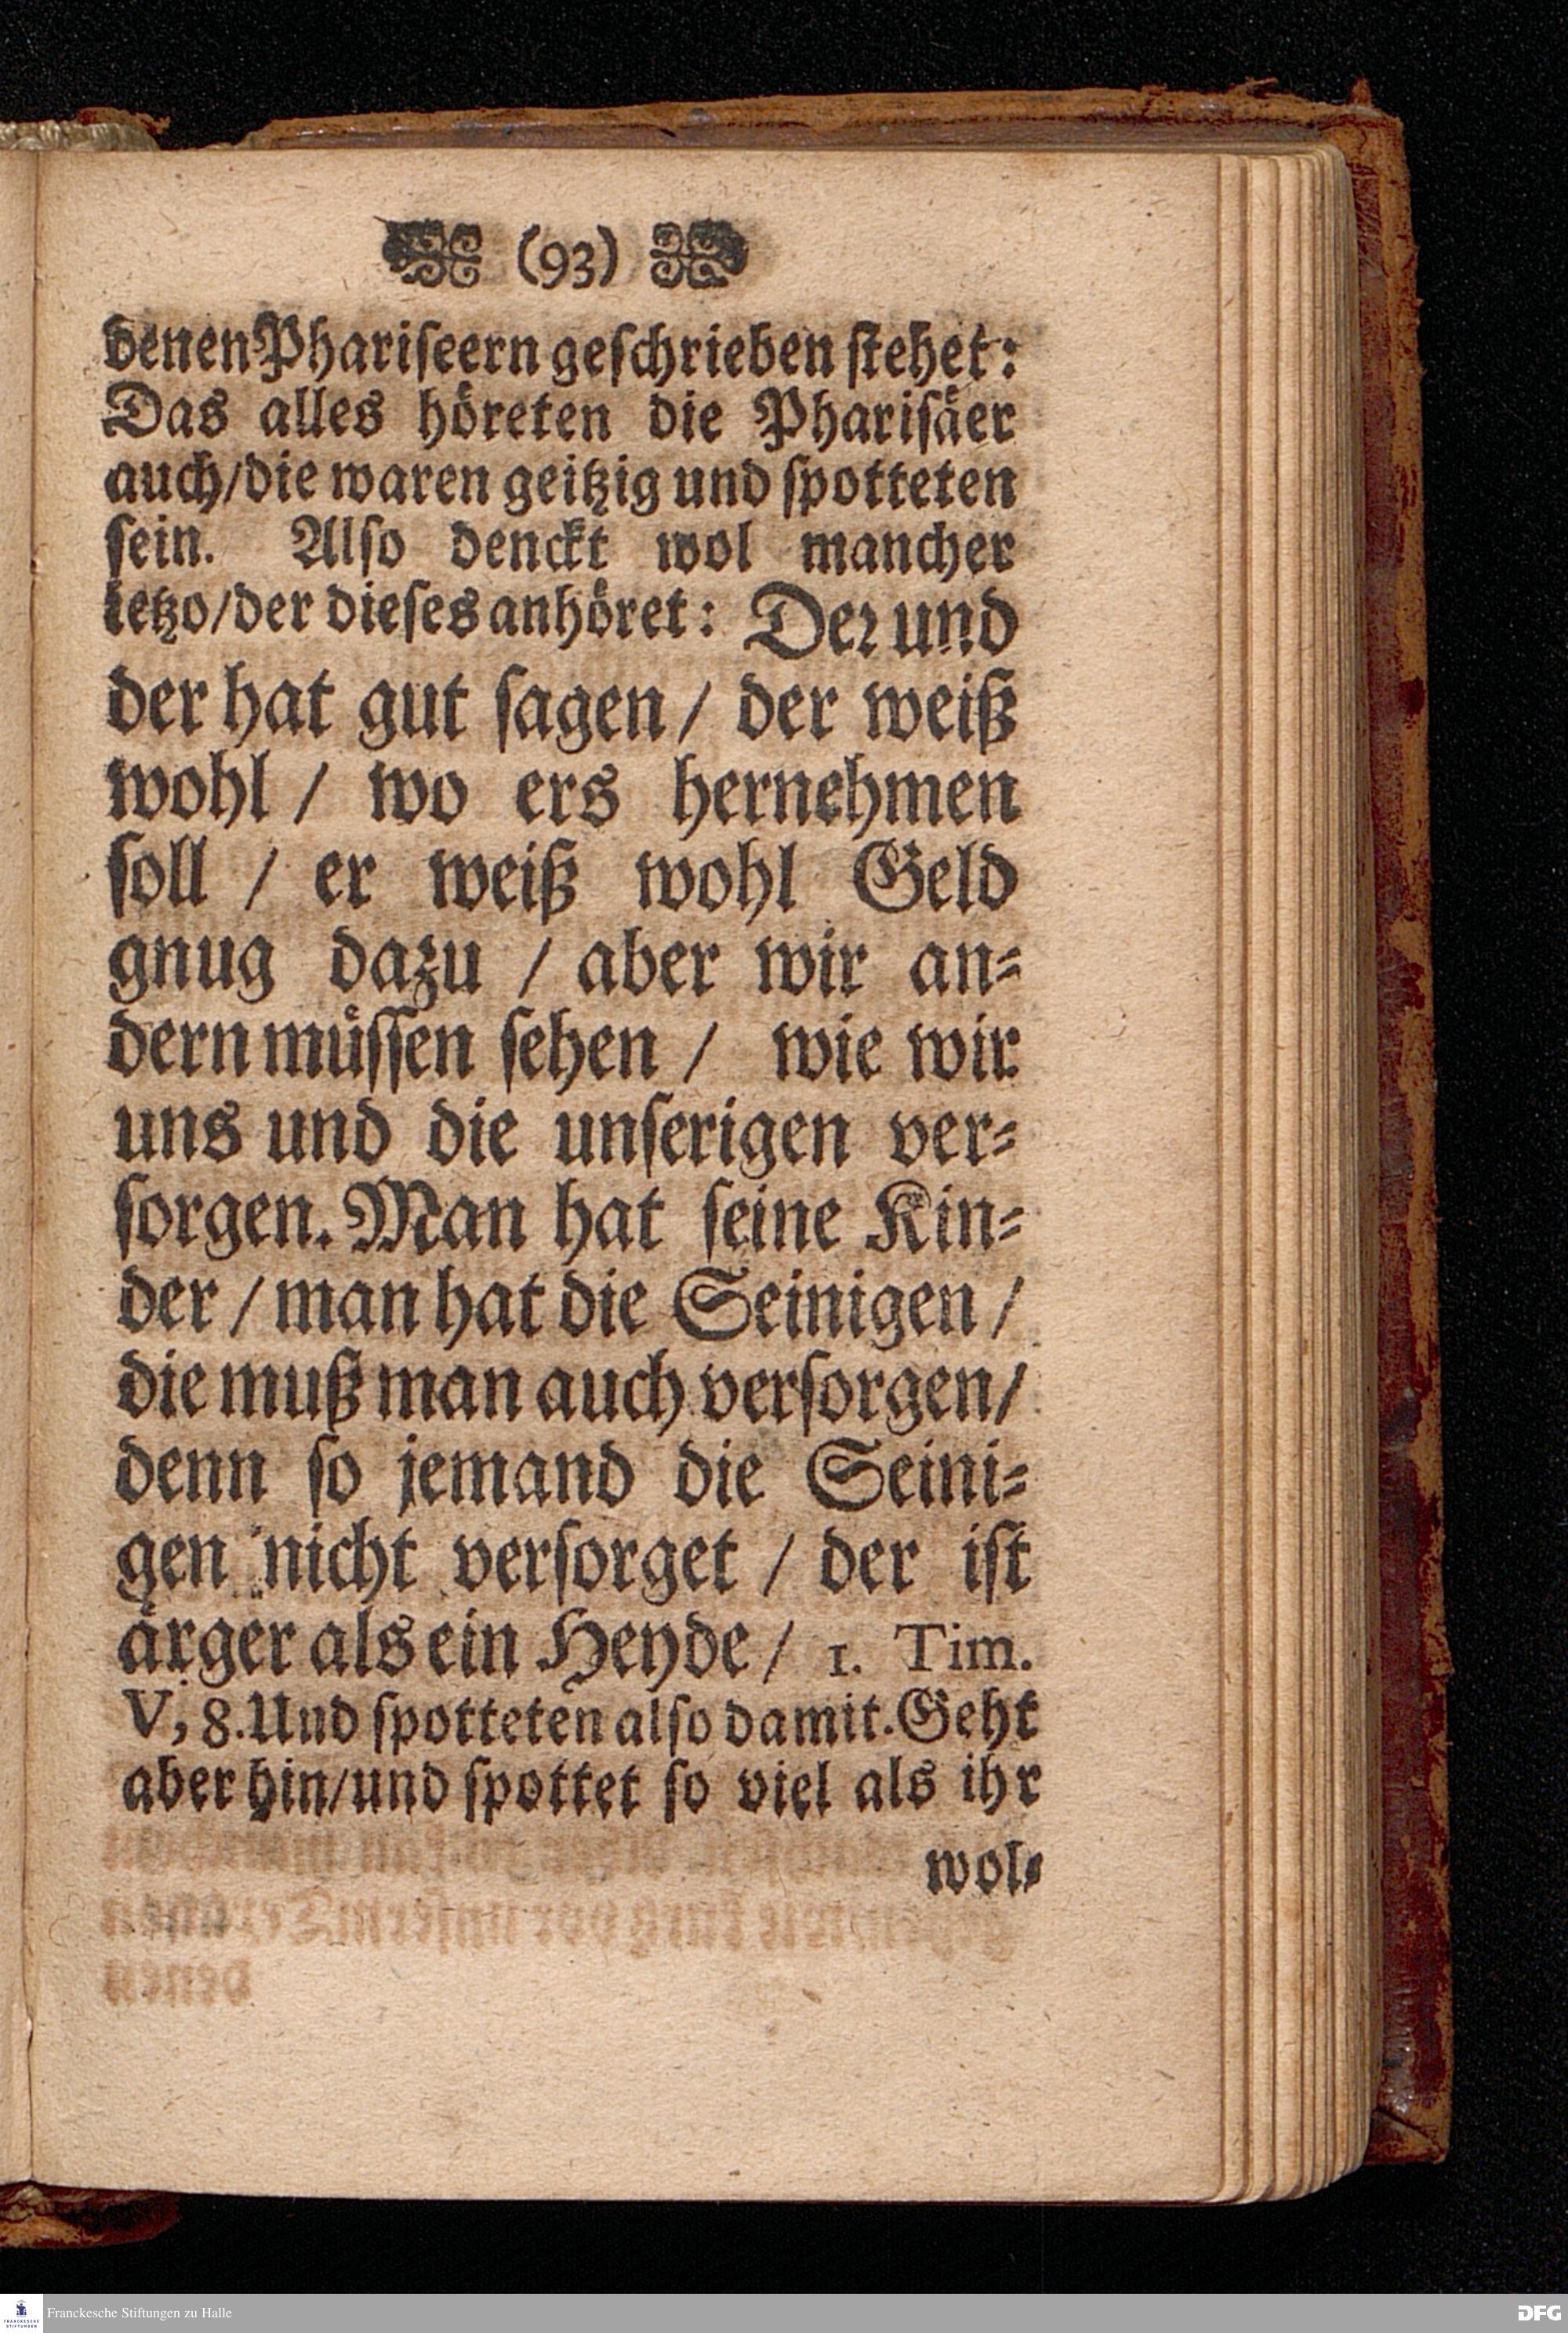 (93)
denen Phariseern geschrieben stehet:
Das alles höreten die Pharisäer
auch/die waren geitzig und spotteten
sein. Also denckt wol mancher
ietzo/der dieses anhöret: Der und
der hat gut sagen/ der weiß
wohl / wo ers hernehmen
soll / er weiß wohl Geld
gnug dazu / aber wir an-
dern müssen sehen / wie wir
uns und die unserigen ver-
sorgen. Man hat seine Kin-
der / man hat die Seinigen /
die muß man auch versorgen/
denn so jemand die Seini-
gen nicht versorget / der ist
ärger als ein Heyde/ 1. Tim.
V, 8. Und spotteten also damit. Geht
aber hin/und spottet so viel als ihr
wol-
Franckesche Stiftungen zu Halle
DFG